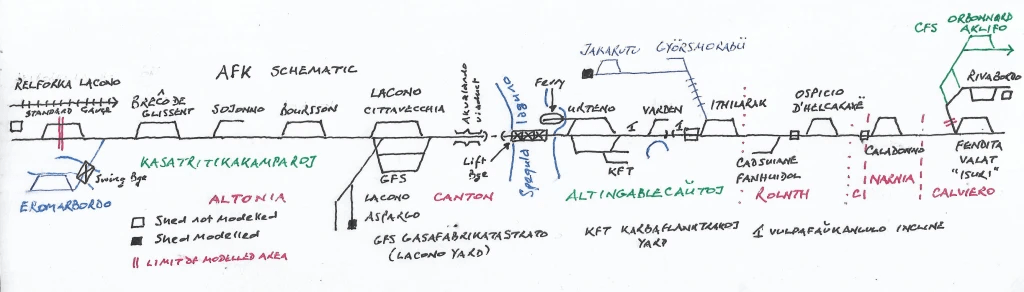 AFK SCHEMATIC
CFS ORBONNARD
AKLIFO
JAKARUTU GYÖRSMORABÜ
RELFORKA LACONO
STANDARD GAUGE
BRÊCQ DE
GLISSENT
SOJONNO
BOURSSON
LACONO
CITTAVECCHIA
Akvalando
viaduct
Spegula laguno
Ferry
URTENO
VARDEN
ITHILARAK
OSPICIO
D'HELCARAXË
RIVABORDO
Swing Bge
Lift
Bge
KFT
GFS
KASATRITIKAKAMPAROJ
EROMARBORDO
ALTONIA
LACONO
ASPARGO
CANTON
ALTINGABLECAŬTOJ
CADSUIANE
FANHUIDOL
ROLNTH
CI
CALADONNO
NARNIA
CALVIERO
FENDITA
VALAT
"ISURI"
□ Shed not Modelled
■ Shed Modelled
|| LIMIT OF MODELLED AREA
GFS GASAFABRIKATASTRATO
(LACONO YARD)
KFT KARBAFLANKTRAKOJ
YARD
1 VULPAFAŬKANGULO INCLINE